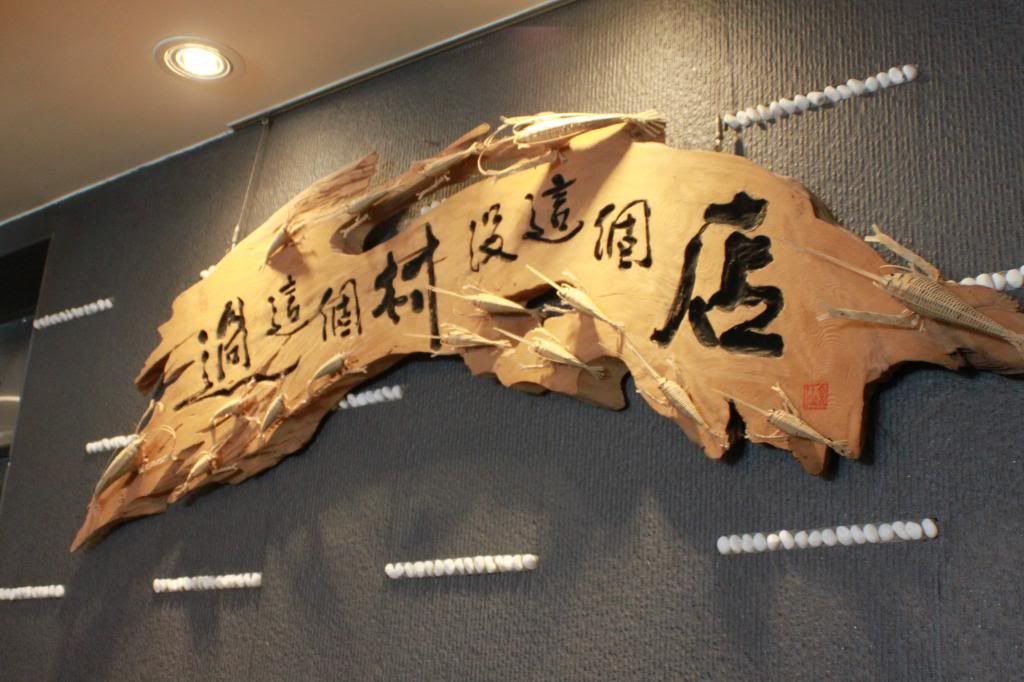 過這個村沒這個店